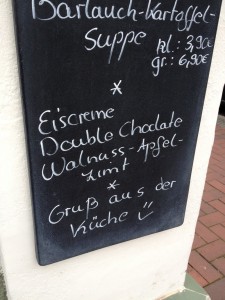 Bärlauch-Kartoffel-
Suppe kl.: 3,90€
gr.: 6,90€
*
Eiscreme
Double Choclate
Walnuss-Apfel-
Zimt
*
Gruß aus der
Küche